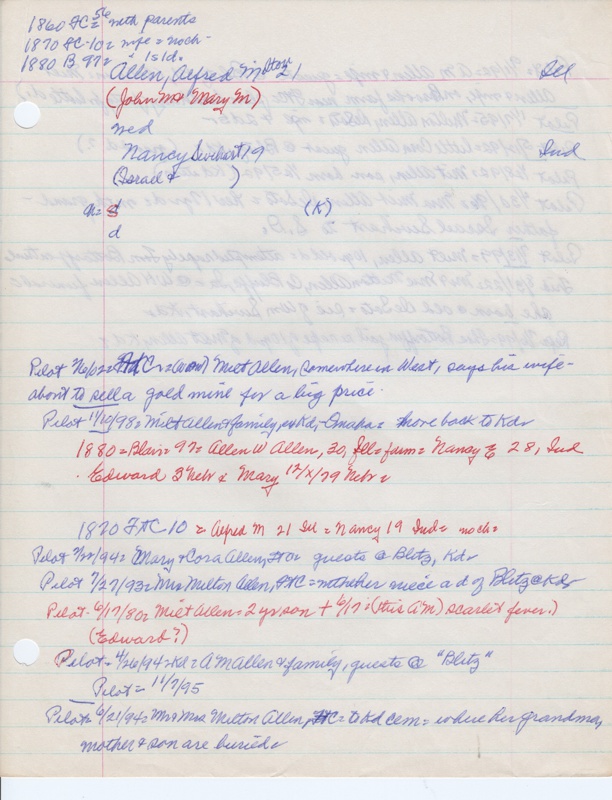 1860 FC = 56 with parents
1870 FC-10 = wife = noch-
1880 B 97 = " 1s 1d.
Allen, Alfred M 21 Ill
(John M & Mary M)
wed
Nancy Swihart 19 Ind
(Israel & )
n = s (K)
d
d
Pilot 2/6/02 = FtC = Milt Allen, somewhere in West, says his wife-
about to sell a gold mine for a big price.
Pilot 11/10/98 = Milt Allen & family, Omaha = move back to Kd
1880 = Blair = 97 = Allen W Allen, 30, Ill = farm = Nancy E 28, Ind
Edward 3 Nebr & Mary 12/X/79 Nebr =
1870 FtC 10 = Alfred M 21 Ill = Nancy 19 Ind = noch =
Pilot 7/22/94 = Mary & Cora Allen, FtC = guests @ Blitz, Kd
Pilot 7/27/93 = Mrs Milton Allen, FtC = with her niece a d of Blitz @ Kd
Pilot = 6/17/80 = Milt Allen = 2 yr son + 6/17 = (this AM) scarlet fever.)
(Edward?)
Pilot = 4/26/94 = Kd = A M Allen & family, guests @ "Blitz"
Pilot = 11/7/95
Pilot = 6/21/94 = Mr & Mrs Milton Allen, FtC = to Kd cem = where her grandma,
mother & son are buried